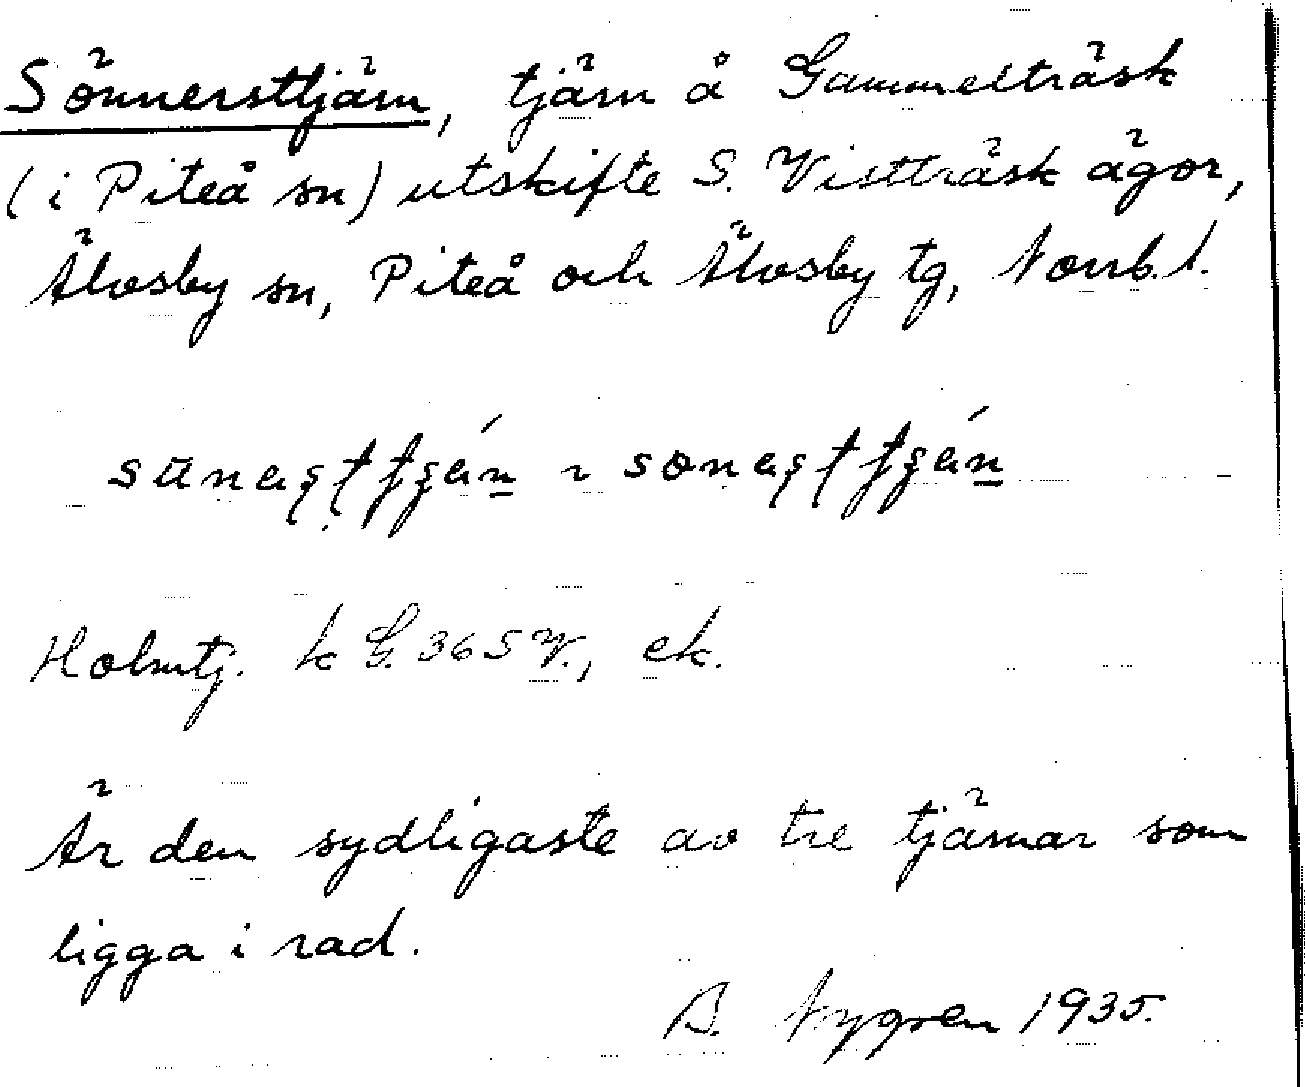 Sönnersttjärn, tjärn å Gammelträsk
(i Piteå sn) utskifte S. Vistträsk ägor,
Älvsby sn, Piteå och Älvsby tg, Norrb. l.
Holmtj. k G. 365 V., ek.
Är den sydligaste av tre tjärnar som
ligga i rad.
A. Nygren 1935.